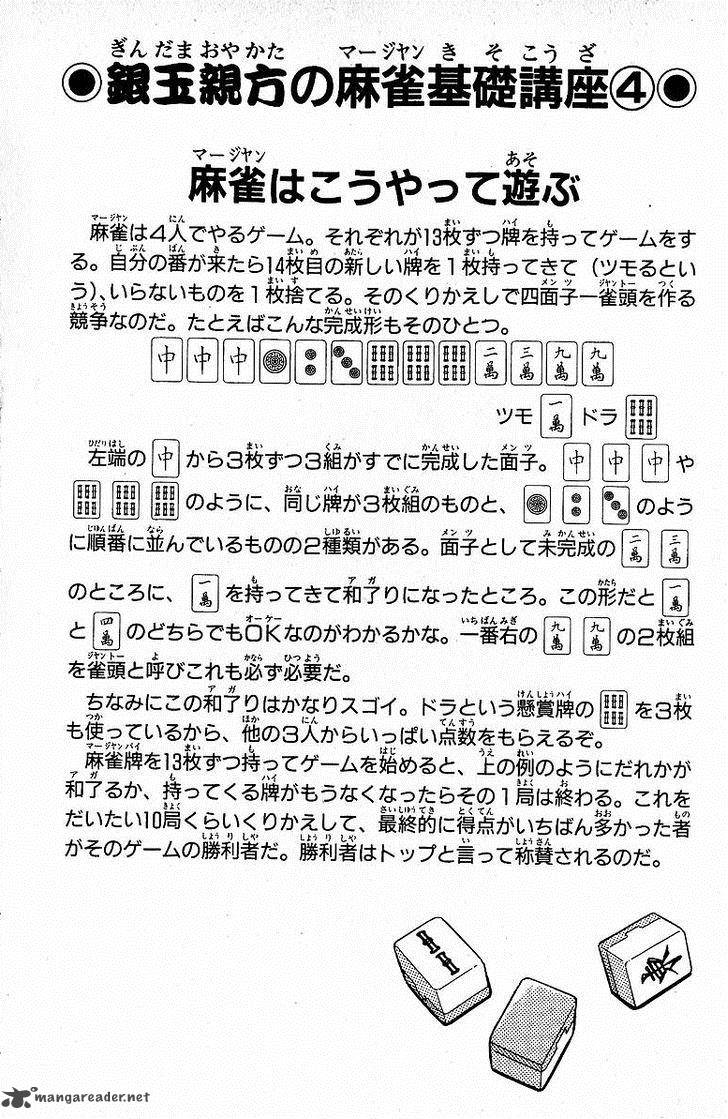 ●銀玉親方の麻雀基礎講座④●
麻雀はこうやって遊ぶ
麻雀は4人でやるゲーム。それぞれが13枚ずつ牌を持ってゲームをす
る。自分の番が来たら14枚目の新しい牌を1枚持ってきて（ツモるとい
う）、いらないものを1枚捨てる。そのくりかえしで四面子一雀頭を作る
競争なのだ。たとえばこんな完成形もそのひとつ。
中 中 中 二萬 三萬 九萬 九萬
ツモ 一萬 ドラ
左端の 中 から3枚ずつ3組がすでに完成した面子。 中 中 中 や
のように、同じ牌が3枚組のものと、 のよう
に順番に並んでいるものの2種類がある。面子として未完成の 二萬 三萬
のところに、 一萬 を持ってきて和了りになったところ。この形だと 一萬
と 四萬 のどちらでもOKなのがわかるかな。一番右の 九萬 九萬 の2枚組
を雀頭と呼びこれも必ず必要だ。
ちなみにこの和了りはかなりスゴイ。ドラという懸賞牌の を3枚
も使っているから、他の3人からいっぱい点数をもらえるぞ。
麻雀牌を13枚ずつ持ってゲームを始めると、上の例のようにだれかが
和了るか、持ってくる牌がもうなくなったらその1局は終わる。これを
だいたい10局くらいくりかえして、最終的に得点がいちばん多かった者
がそのゲームの勝利者だ。勝利者はトップと言って称賛されるのだ。
mangareader.net